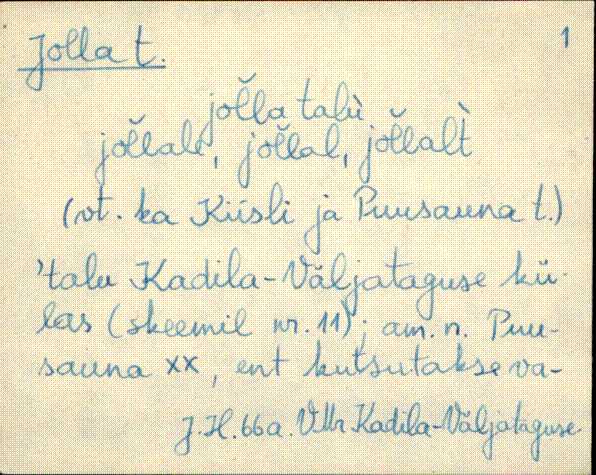 Jolla t. 1
jol̆la talù
jol̆lale, jol̆lal, jol̆lalt̀
(vt. ka Kiisli ja Puusauna t.)
'talu Kadila-Väljataguse kü-
las (skeemil nr. 11); am. n. Puu-
sauna xx, ent kutsutakse va-
J. H. 66a. VMr Kadila-Väljataguse